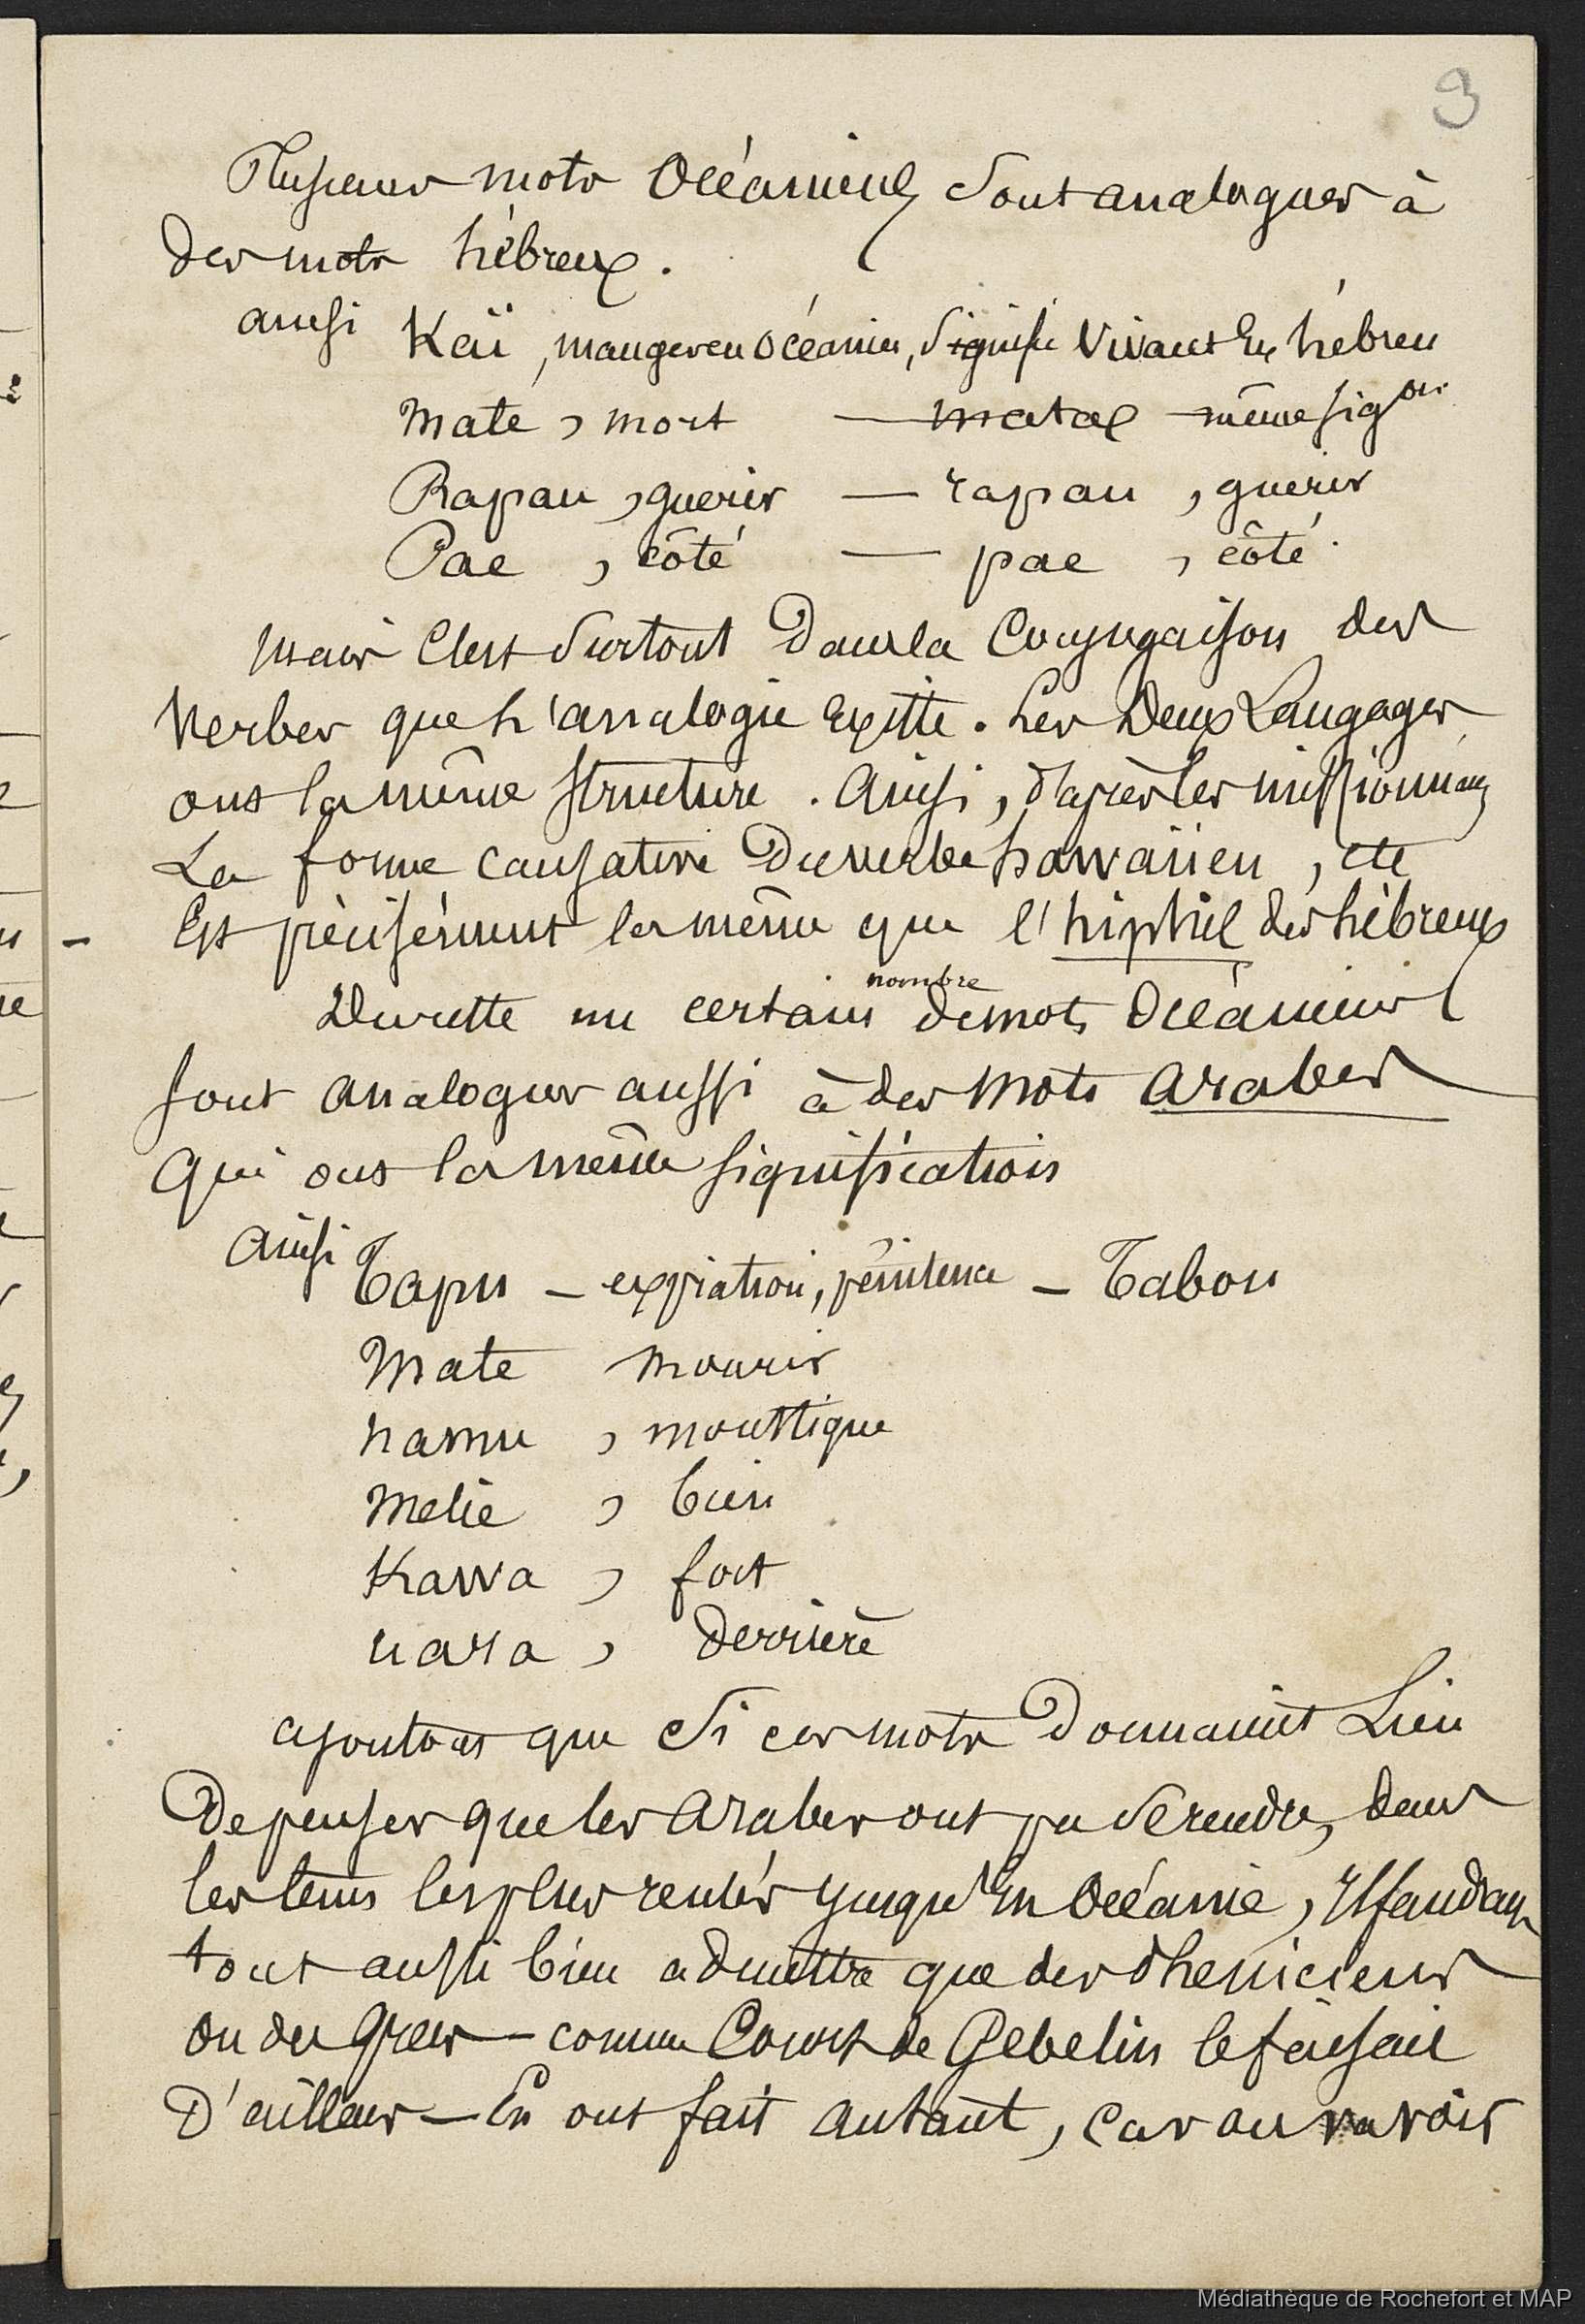 9
Plusieurs mots Océaniens sont analogues à
des mots hébreux.
ainsi Kaï, manger en Océanien, signifie Vivant En hébreu
Mate, mort — matax même sigon
Rapau, guerir — rapau, guerir
Pae, côté — pae, côté.
mais C'est surtout Dans la Conjugaison des
Verbes que l'analogie Existe. Les Deux Langages
ont la même structure. Ainsi, d'après les missionnaires
La forme causative Du verbe hawaiien, etc
Est précisément la même que l'hiphil des hébreux
De reste un certain nombre de mots Océaniens
sont analogues aussi à des mots arabes
Qui ont la même signification
Ainsi Tapu — expiation, pénitence — Tabou
Mate mourir
namu, moustique
Melie, bien
Kawa, fort
uara, Derrière
ajoutons que Si ces mots Donnaient Lieu
De penser que les Arabes ont pu se rendre, dans
les tems les plus reculés jusqu'en Océanie, Il faudrait
tout aussi bien admettre que des Pheniciens
ou des Grecs — comme Court de Gebelin le faisait
D'ailleurs — En ont fait autant, car on va voir
Médiathèque de Rochefort et MAP